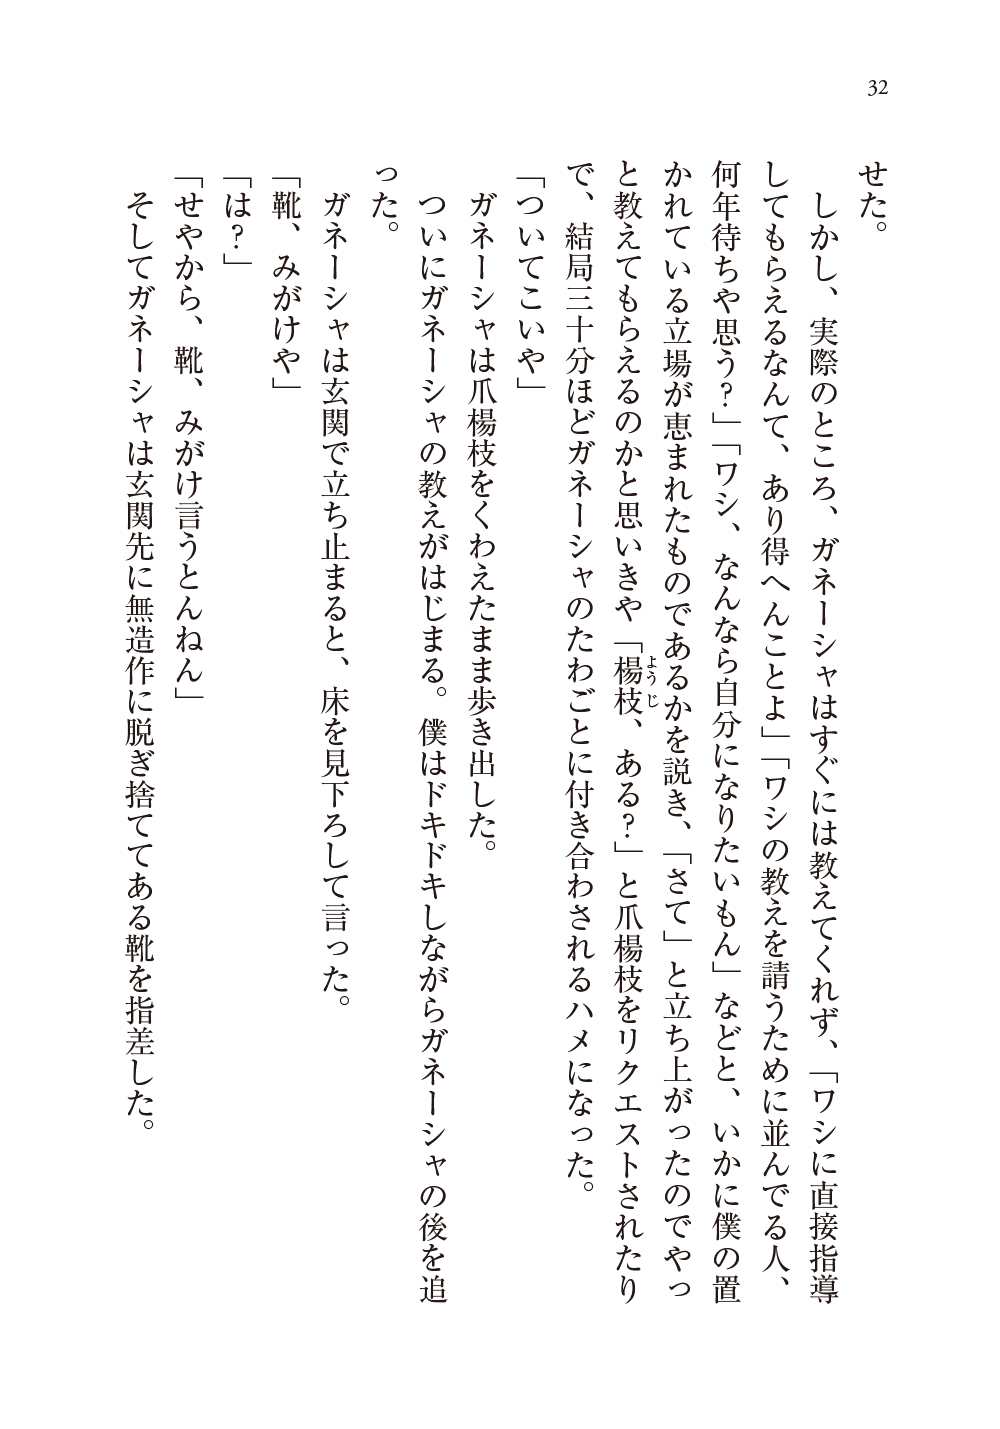 32
せた。
　しかし、実際のところ、ガネーシャはすぐには教えてくれず、「ワシに直接指導
してもらえるなんて、あり得へんことよ」「ワシの教えを請うために並んでる人、
何年待ちや思う?」「ワシ、なんなら自分になりたいもん」などと、いかに僕の置
かれている立場が恵まれたものであるかを説き、「さて」と立ち上がったのでやっ
と教えてもらえるのかと思いきや「楊枝、ある?」と爪楊枝をリクエストされたり
ようじ
で、結局三十分ほどガネーシャのたわごとに付き合わされるハメになった。
「ついてこいや」
　ガネーシャは爪楊枝をくわえたまま歩き出した。
　ついにガネーシャの教えがはじまる。僕はドキドキしながらガネーシャの後を追
った。
　ガネーシャは玄関で立ち止まると、床を見下ろして言った。
「靴、みがけや」
「は?」
「せやから、靴、みがけ言うとんねん」
　そしてガネーシャは玄関先に無造作に脱ぎ捨ててある靴を指差した。